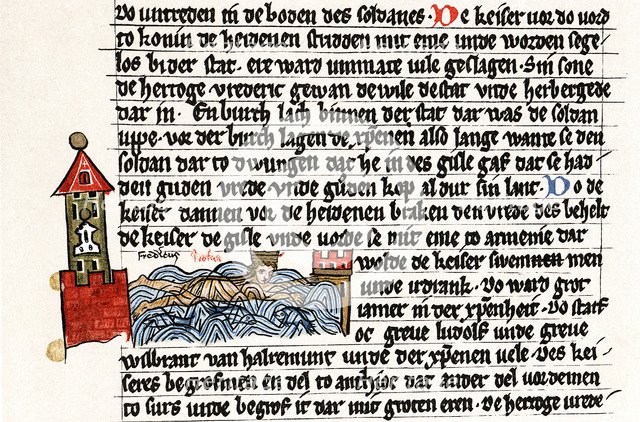 vo untreden in de boden des soldanes. De keiser vor do vord
to konin de heidenen stridden mit eme unde worden sege
los bi der stat. ere ward unmate vile geslagen. Sin sone
de hertoge vrederic gewan de wile de stat unde herbergede
dar in. En burch lach binnen der stat dar was de soldan
uppe. vor der burch lagen de xpenen also lange wante se den
soldan dar to dwungen dat he in des gisle gaf dat se had
den guden vrede unde guden kop al dur sin lant. Do de
keiser dannen vor de heidenen braken den vrede des behelt
de keiser de gisle unde vorde se mit eme to armenie dar
Fredicus
wolde de keiser swemmen
unde irdrank. Do ward grot
iamer in der xpenheit. Do starf
oc greve ludolf unde greve
wilbrant van halremunt unde der xpenen vele. Des kei
seres begrofmen en del to anthioc dat ander del vordemen
to surs unde begrof it dar mit groten eren. De hertoge vrede